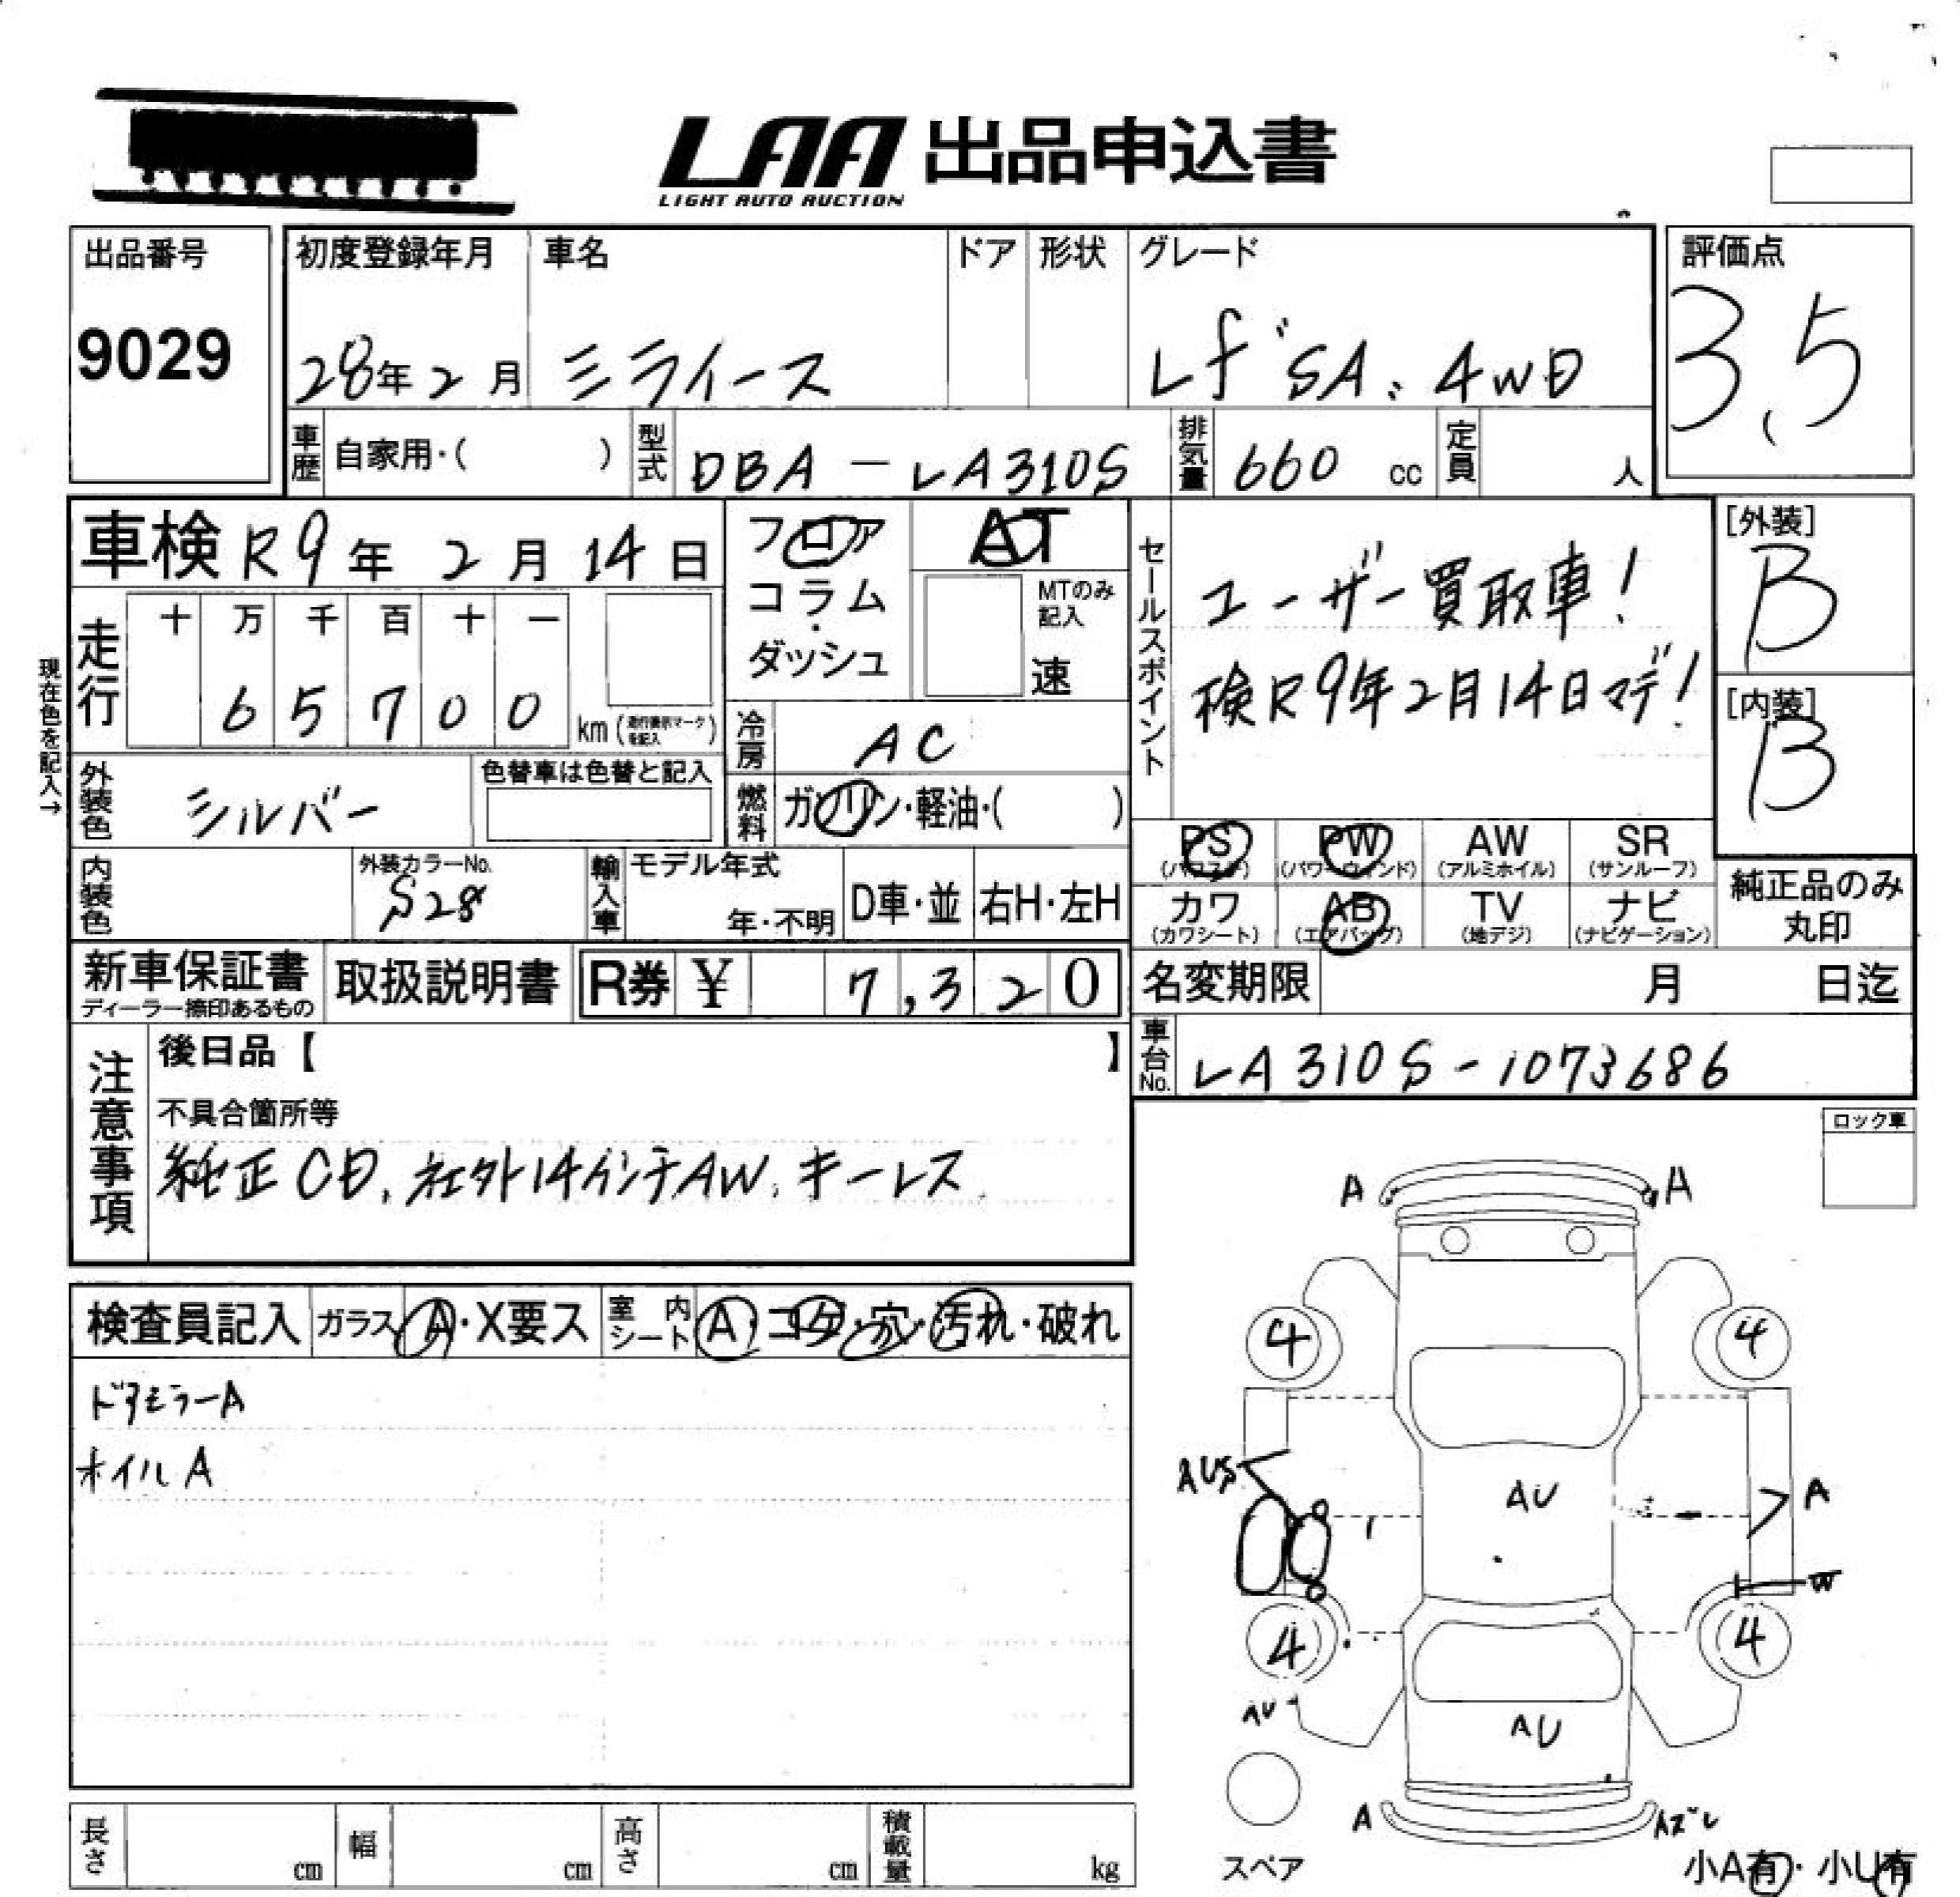 LAA 出品申込書
LIGHT AUTO AUCTION
出品番号 初度登録年月 車名 ドア 形状 グレード 評価点
9029 28年2月 ミライース Lf"SA. 4WD 3.5
車歴 自家用・( ) 型式 DBA-LA310S 排気量 660 cc 定員 人
車検 R9年2月14日 フロア AT
コラム・ MTのみ記入
ダッシュ 速
走行 十 万 千 百 十 一
65700 km (走行表示マークを記入)
現在色を記入→
冷房 AC
外装色 シルバー 色替車は色替と記入
燃料 ガソリン・軽油・( )
セールスポイント
ユーザー買取車!
検R9年2月14日マデ!
[外装] B
[内装] B
PS (パワステ) PW (パワーウィンド) AW (アルミホイル) SR (サンルーフ)
カワ (カワシート) AB (エアバッグ) TV (地デジ) ナビ (ナビゲーション)
純正品のみ
丸印
内装色 外装カラーNo. S28 輸入車 モデル年式 年・不明 D車・並 右H・左H
新車保証書 取扱説明書 R券 ¥ 7,320
ディーラー捺印あるもの
名変期限 月 日迄
車台No. LA310S-1073686
注意事項
後日品【 】
不具合箇所等
純正CD, 社外14インチAW, キーレス
ロック車
検査員記入 ガラス A・X要ス 室内シート A・コゲ・穴・汚れ・破れ
ドアミラーA
ホイルA
A A
4 4
AUS AU A
W
4 4
AU AU
A Aズレ
スペア
小A有・小U有
長さ cm 幅 cm 高さ cm 積載量 kg